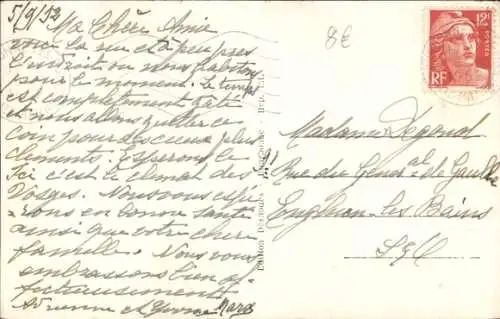 5/9/52
Ma Chère Amie
voici la rue et à peu près
l'endroit ou nous habitons
pour le moment. Le temps
est complètement gâté
et nous allons quitter ce
coin pour des cieux plus
cléments. Espérons le
Ici c'est le climat des
Vosges. Nous vous espé-
rons en bonne santé
ainsi que votre chère
famille. Nous vous
embrassons bien af-
fectueusement
Yvonne Marc
8€
12F
POSTES
RF
Madame Legend
91 Rue du Général de Gaulle
Enghien-les Bains
S & O